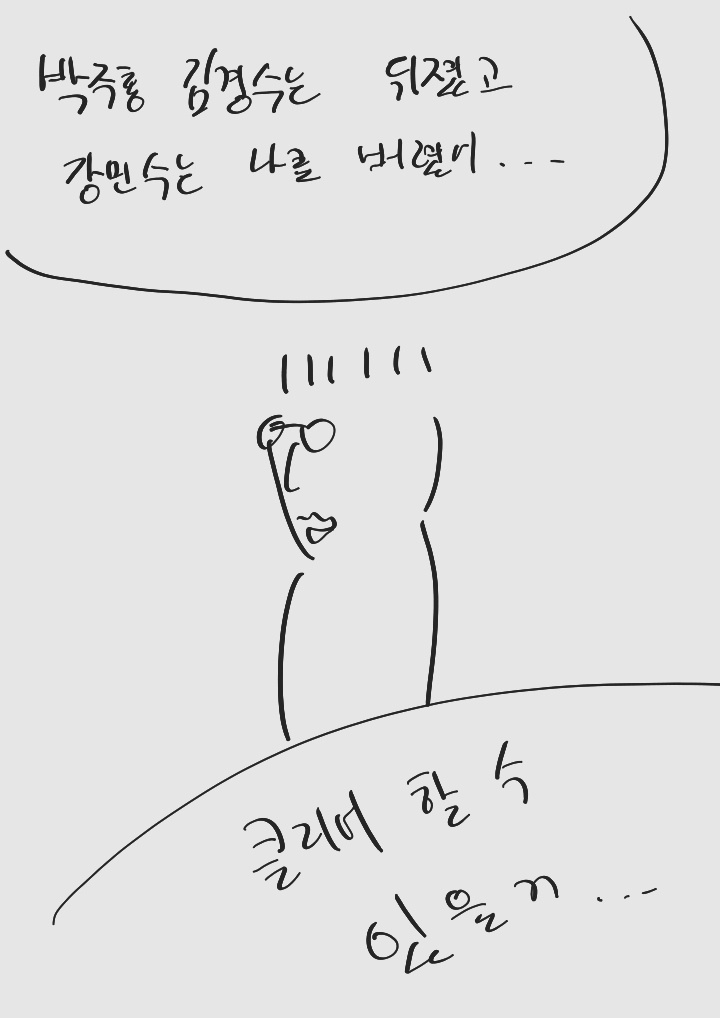 박주홍 김경수는 뒤졌고
강민수는 나를 버렸어...
클리어 할 수
있을까...